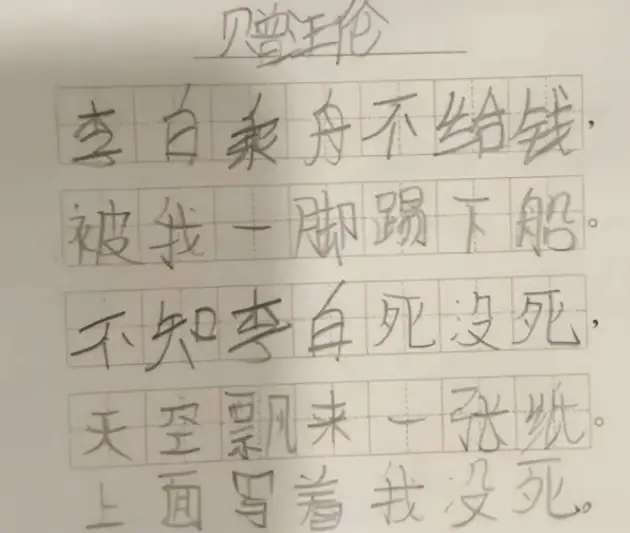 赠王伦
李白乘舟不给钱，
被我一脚踢下船。
不知李白死没死，
天空飘来一张纸。
上面写着我没死。